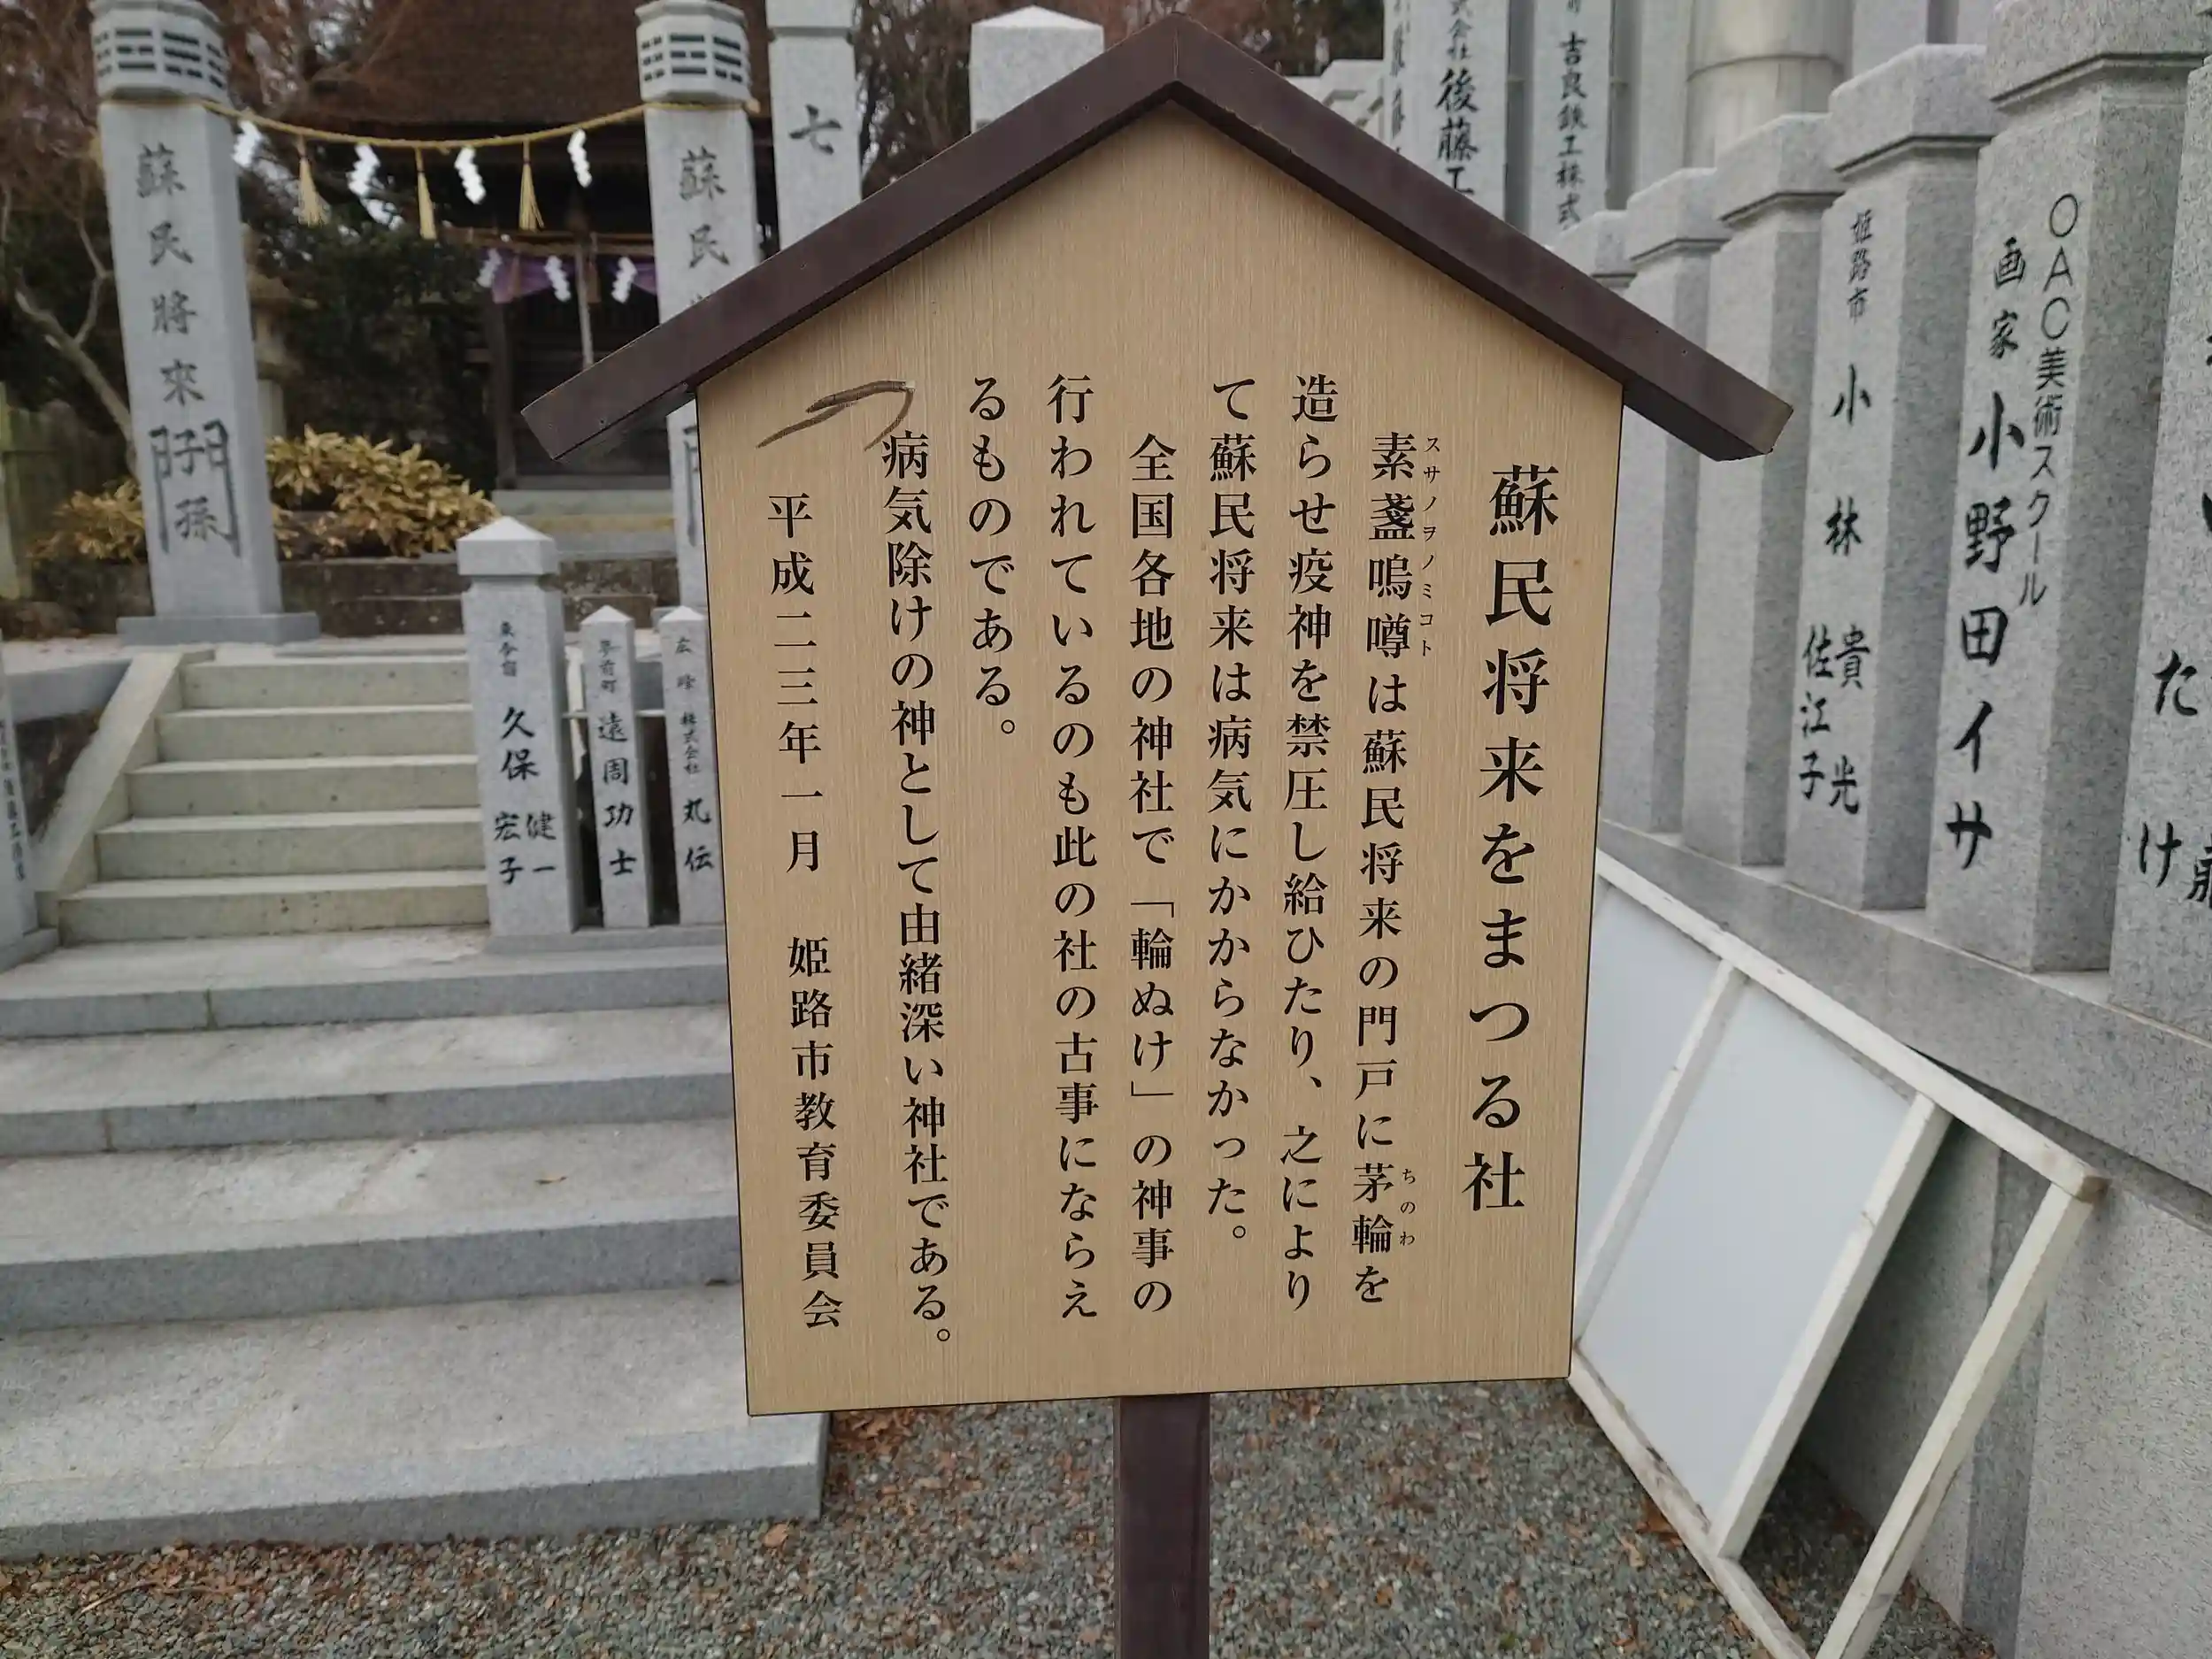 蘇民将来をまつる社
素盞嗚噂は蘇民将来の門戸に茅輪を
スサノヲノミコト
ちのわ
造らせ疫神を禁圧し給ひたり、之により
て蘇民将来は病気にかからなかった。
全国各地の神社で「輪ぬけ」の神事の
行われているのも此の社の古事にならえ
るものである。
病気除けの神として由緒深い神社である。
平成二三年一月 姫路市教育委員会
蘇民將來子孫
蘇民
七
後藤工
吉良鉄工株式
姫路市 小林 貴光
佐江子
OAC美術スクール
画家 小野田イサ
たけ
久保 健一
宏子
遠周功士
広峰 株式会社 丸伝